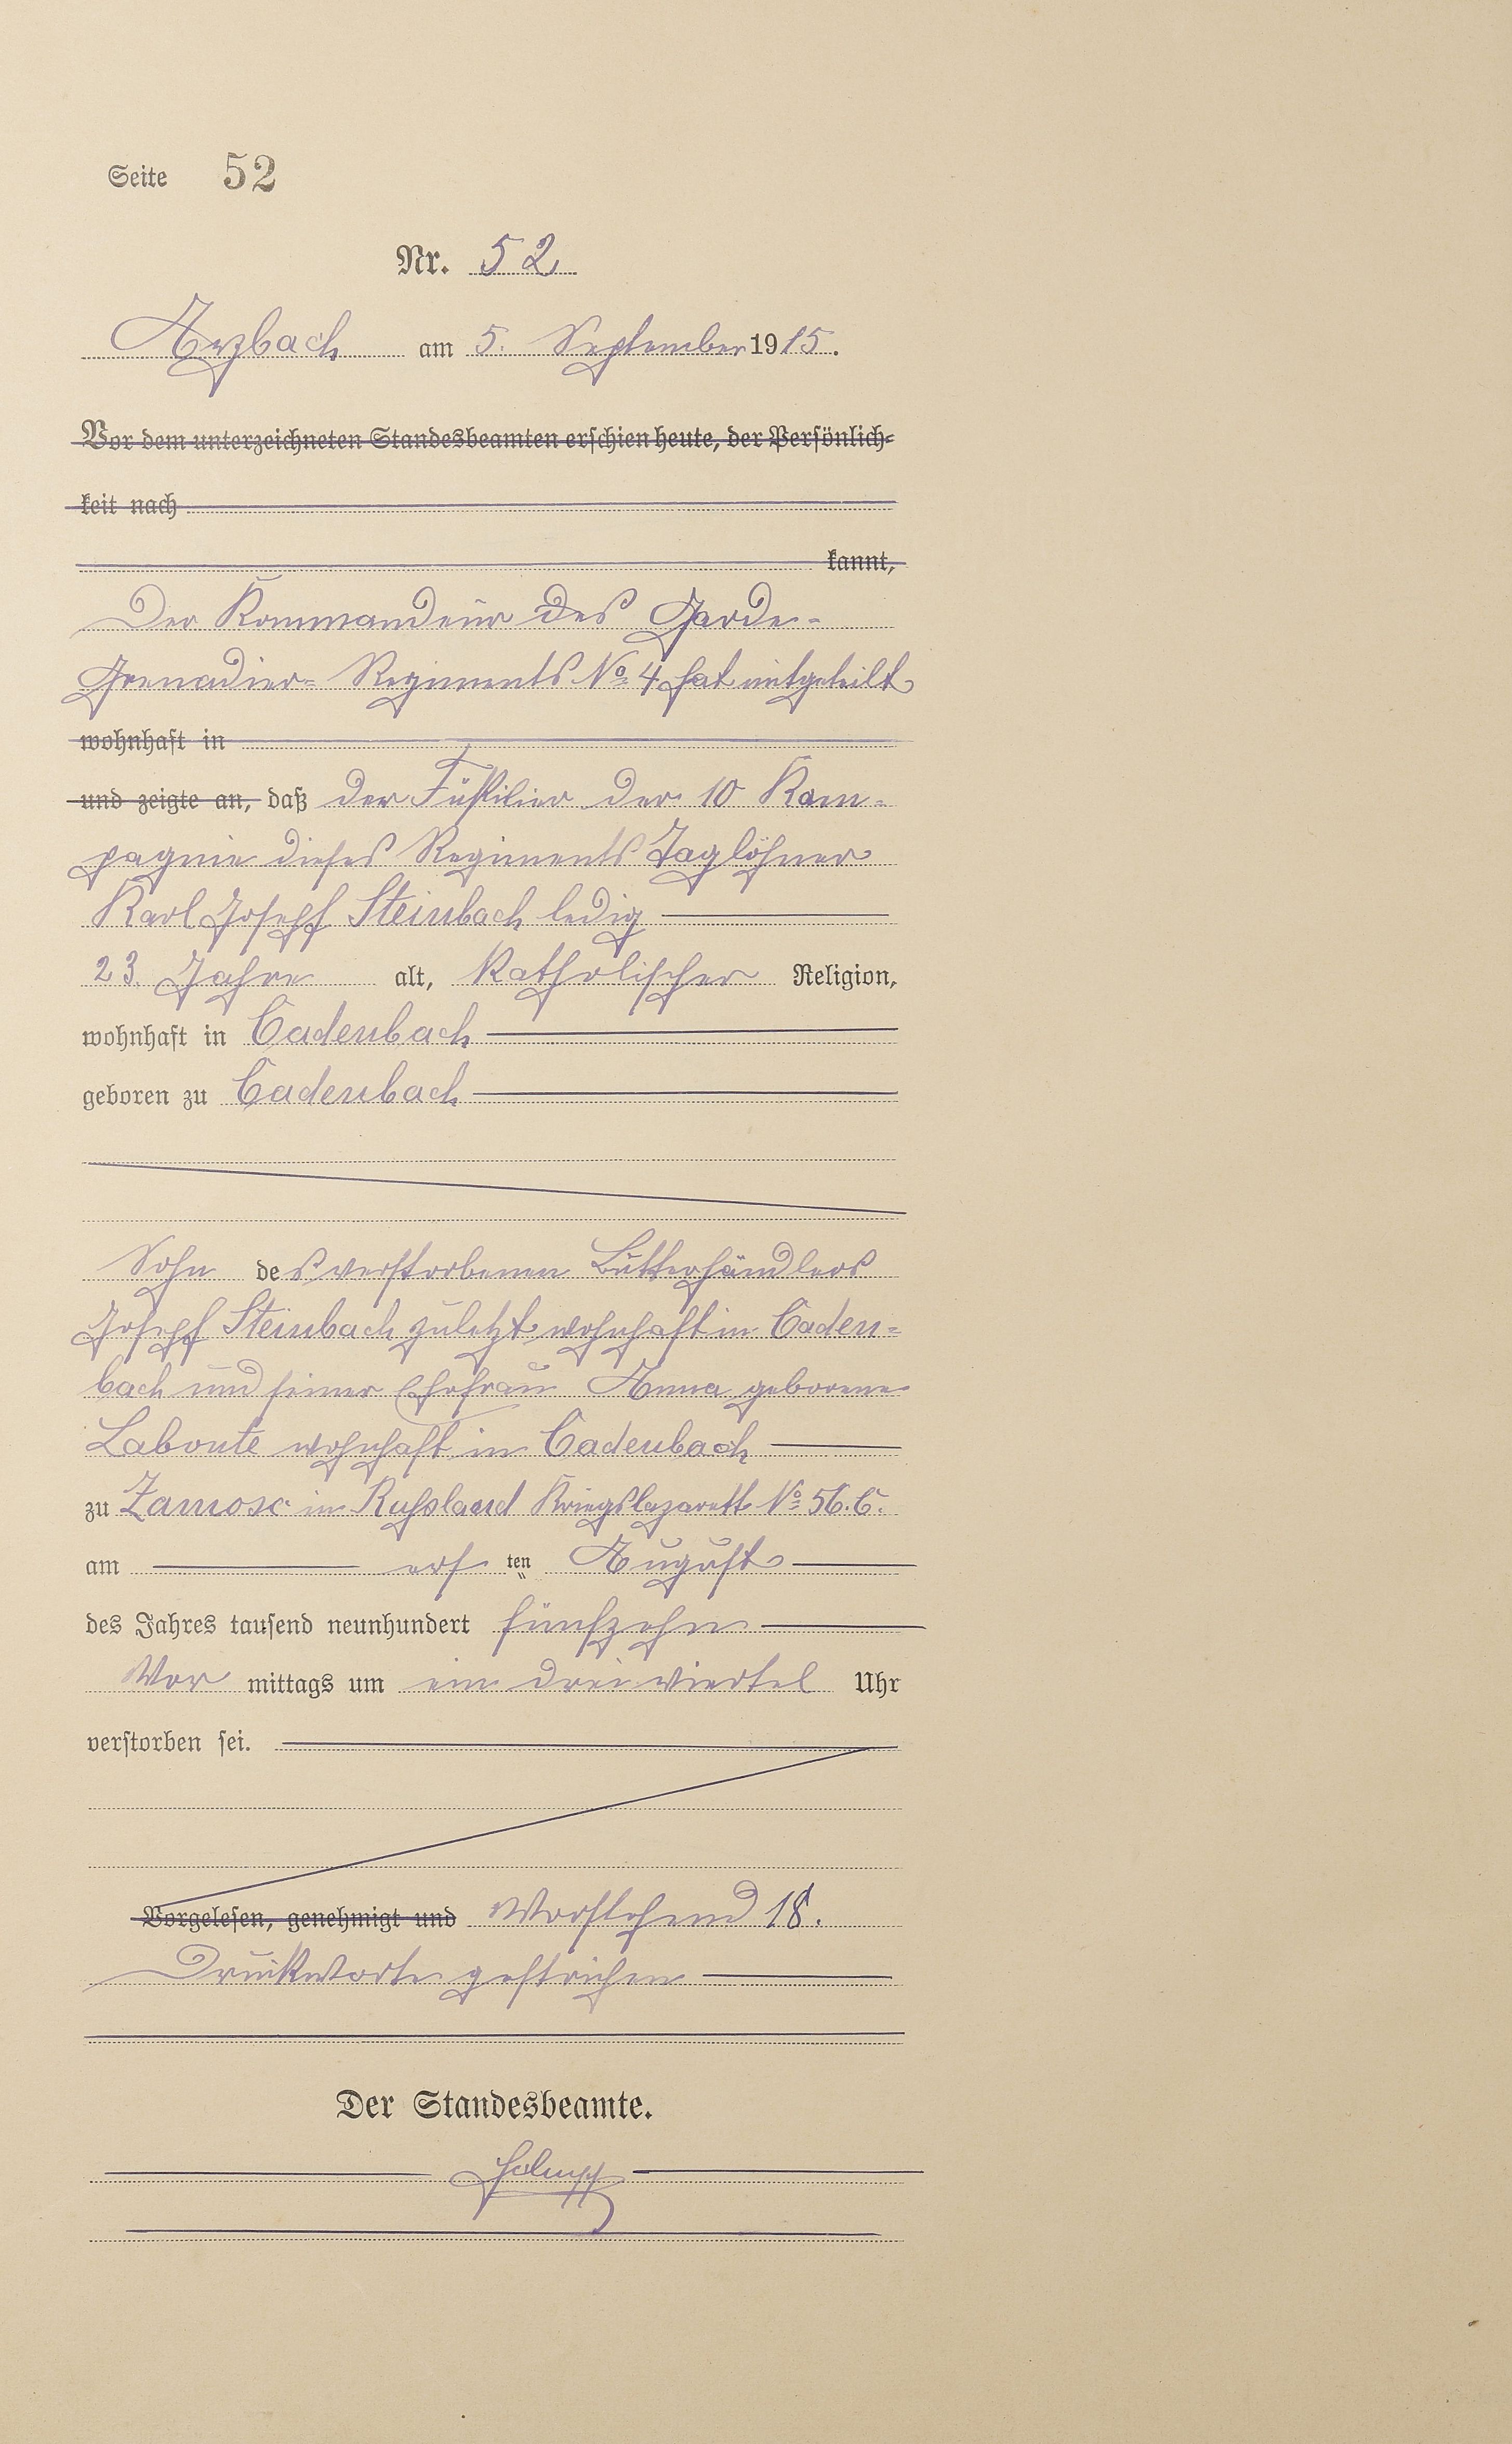 Seite 52
Nr. 52
Arzbach am 5. September 1915.
Vor dem unterzeichneten Standesbeamten erschien heute, der Persönlich-
keit nach
kannt,
Der Kommandeur des Garde-
Grenadier-Regiments No 4 hat mitgeteilt
wohnhaft in
und zeigte an, daß der Füsilier der 10 Kom-
pagnie dieses Regiments Taglöhner
Karl Joseph Steinbach ledig
23. Jahre alt, katholischer Religion,
wohnhaft in Cadenbach
geboren zu Cadenbach
Sohn des verstorbenen Butterhändlers
Joseph Steinbach zuletzt wohnhaft in Caden-
bach und seiner Ehefrau Anna geborene
Labonte wohnhaft in Cadenbach
zu Zamosc in Russland Kriegslazarett No 56. C.
am ersten August
des Jahres tausend neunhundert fünfzehn
Vor mittags um ein dreiviertel Uhr
verstorben sei.
Vorgelesen, genehmigt und Vorstehend 18.
Druckworte gestrichen
Der Standesbeamte.